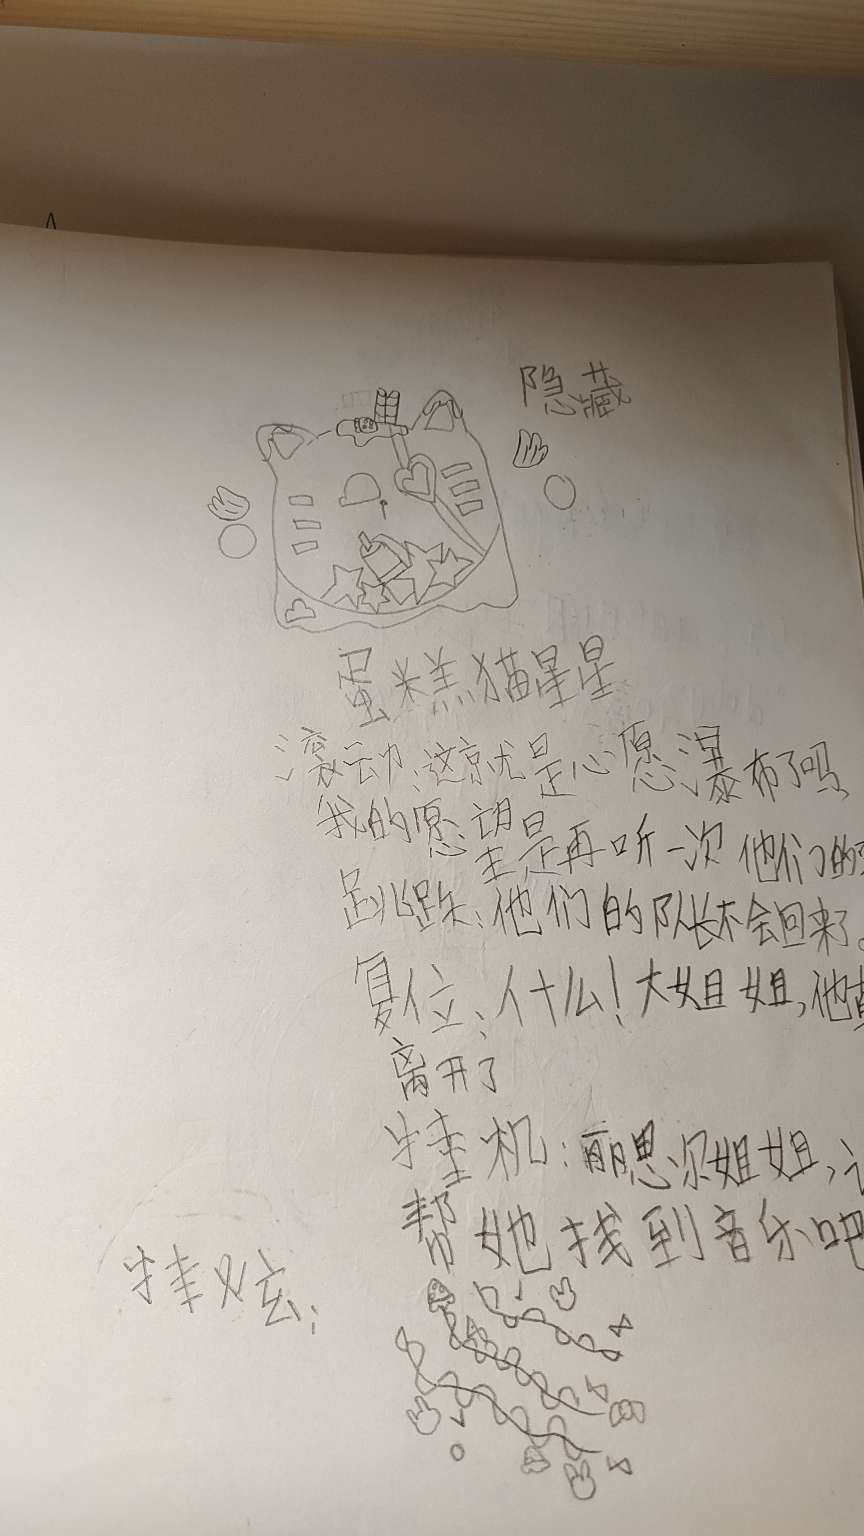 隐藏
蛋糕猫星星
滚动:这就是心愿瀑布了吗
我的愿望是再听一次他们的
跳跃:他们的队长不会回来了。
复位:什么!大姐姐,他
离开了
挂机:丽思尔姐姐,
帮她找到音乐吧
挂炫: